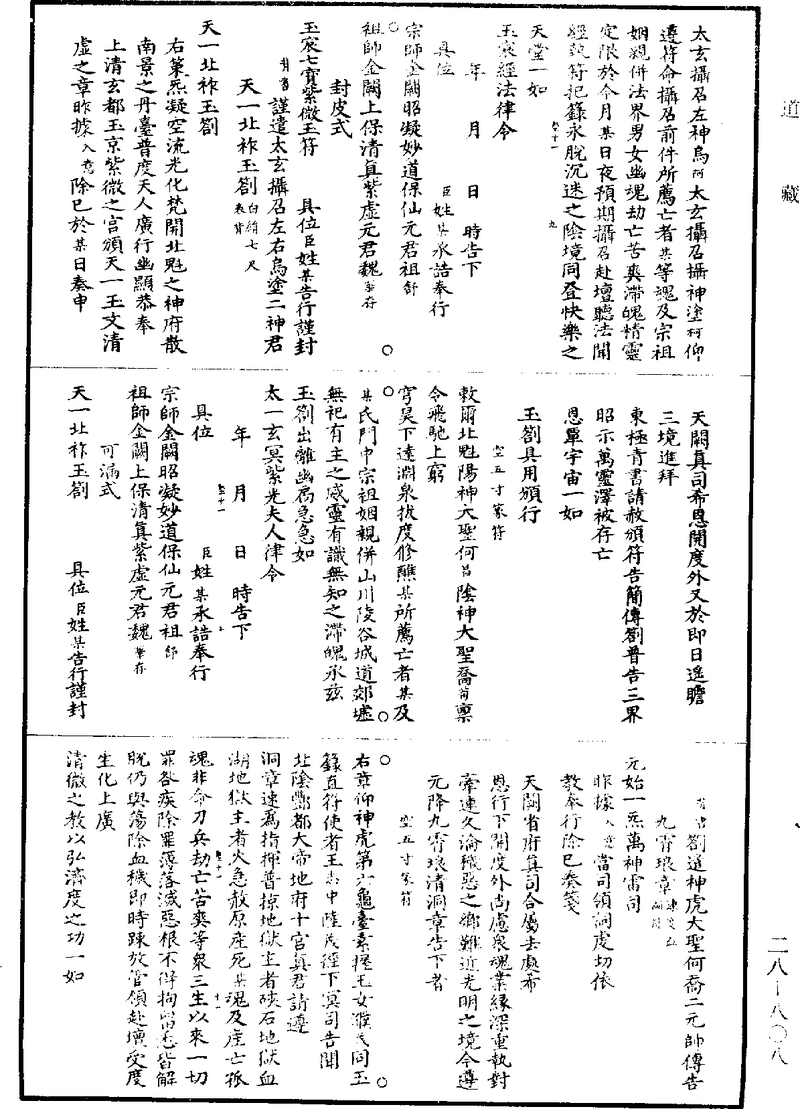 道藏
二八—八〇八
太玄攝召左神烏阿太玄攝召攝神塗柯仰
遵符命攝召前件所薦亡者某等魂及宗祖
姻親併法界男女幽魂劫亡苦爽滯魄精靈
定限於今月某日夜預期攝召赴壇聽法聞
經敕符把籙永脫沉迷之陰境同登快樂之
天堂一如
玉宸經法律令
年 月 日 時告下
具位 臣姓某承誥奉行
宗師金闕昭凝妙道保仙元君祖舒
祖師金闕上保清真紫虛元君魏華存
封皮式
玉宸七寶紫微玉符 具位臣姓某告行謹封
謹遣太玄攝召左右烏塗二神君
天一北祚玉劄
天一北祚玉劄
右篆炁凝空流光化梵開北魁之神府散
南景之丹臺普度天人廣行幽顯恭奉
上清玄都玉京紫微之宮頒天一玉文清
虛之章昨據入意除已於某日奏申
天闕真司希恩開度外又於即日遙瞻
三境進拜
東極青書請赦頒符告簡傳劄普告三界
昭示萬靈澤被存亡
恩覃宇宙一如
玉劄具用頒行
空五寸篆符
敕爾北魁陽神大聖何昌陰神大聖喬荀稟
令飛馳上窮
穹昊下達淵泉拔度修醮某所薦亡者某及
某氏門中宗祖姻親併山川陵谷城道郊墟
無祀有主之感靈有識無知之滯魄承茲
玉劄出離幽扃急急如
太一玄冥紫光夫人律令
年 月 日 時告下
具位 臣姓某承誥奉行
宗師金闕昭凝妙道保仙元君祖舒
祖師金闕上保清真紫虛元君魏華存
可漏式
天一北祚玉劄 具位臣姓某告行謹封
劄送神虎大聖何喬二元帥傳告
九霄琅章
元始一炁萬神雷司
昨據入意當司領詞虔切依
教奉行除已奏箋
天闕省府真司合屬去處希
恩行下開度外尚慮衆魂業緣深重執對
牽連久淪穢惡之鄉難近光明之境今遵
元降九霄琅清洞章告下者
空五寸篆符
右章仰神虎第六龜臺素握玉女
籙直符使者王志中陸茂徑下冥司告聞
北陰酆都大帝地府十宮真君請遵
洞章速爲指揮普掠地獄主者硤石地獄血
湖地獄主者火急赦原産死某魂及産亡孤
魂非命刀兵劫亡苦爽等衆三生以來一切
罪咎疾除罪簿落滅惡根不得拘留悉皆解
脫仍與蕩除血穢即時踈放管領赴壇受度
生化上廣
清微之教以弘濟度之功一如